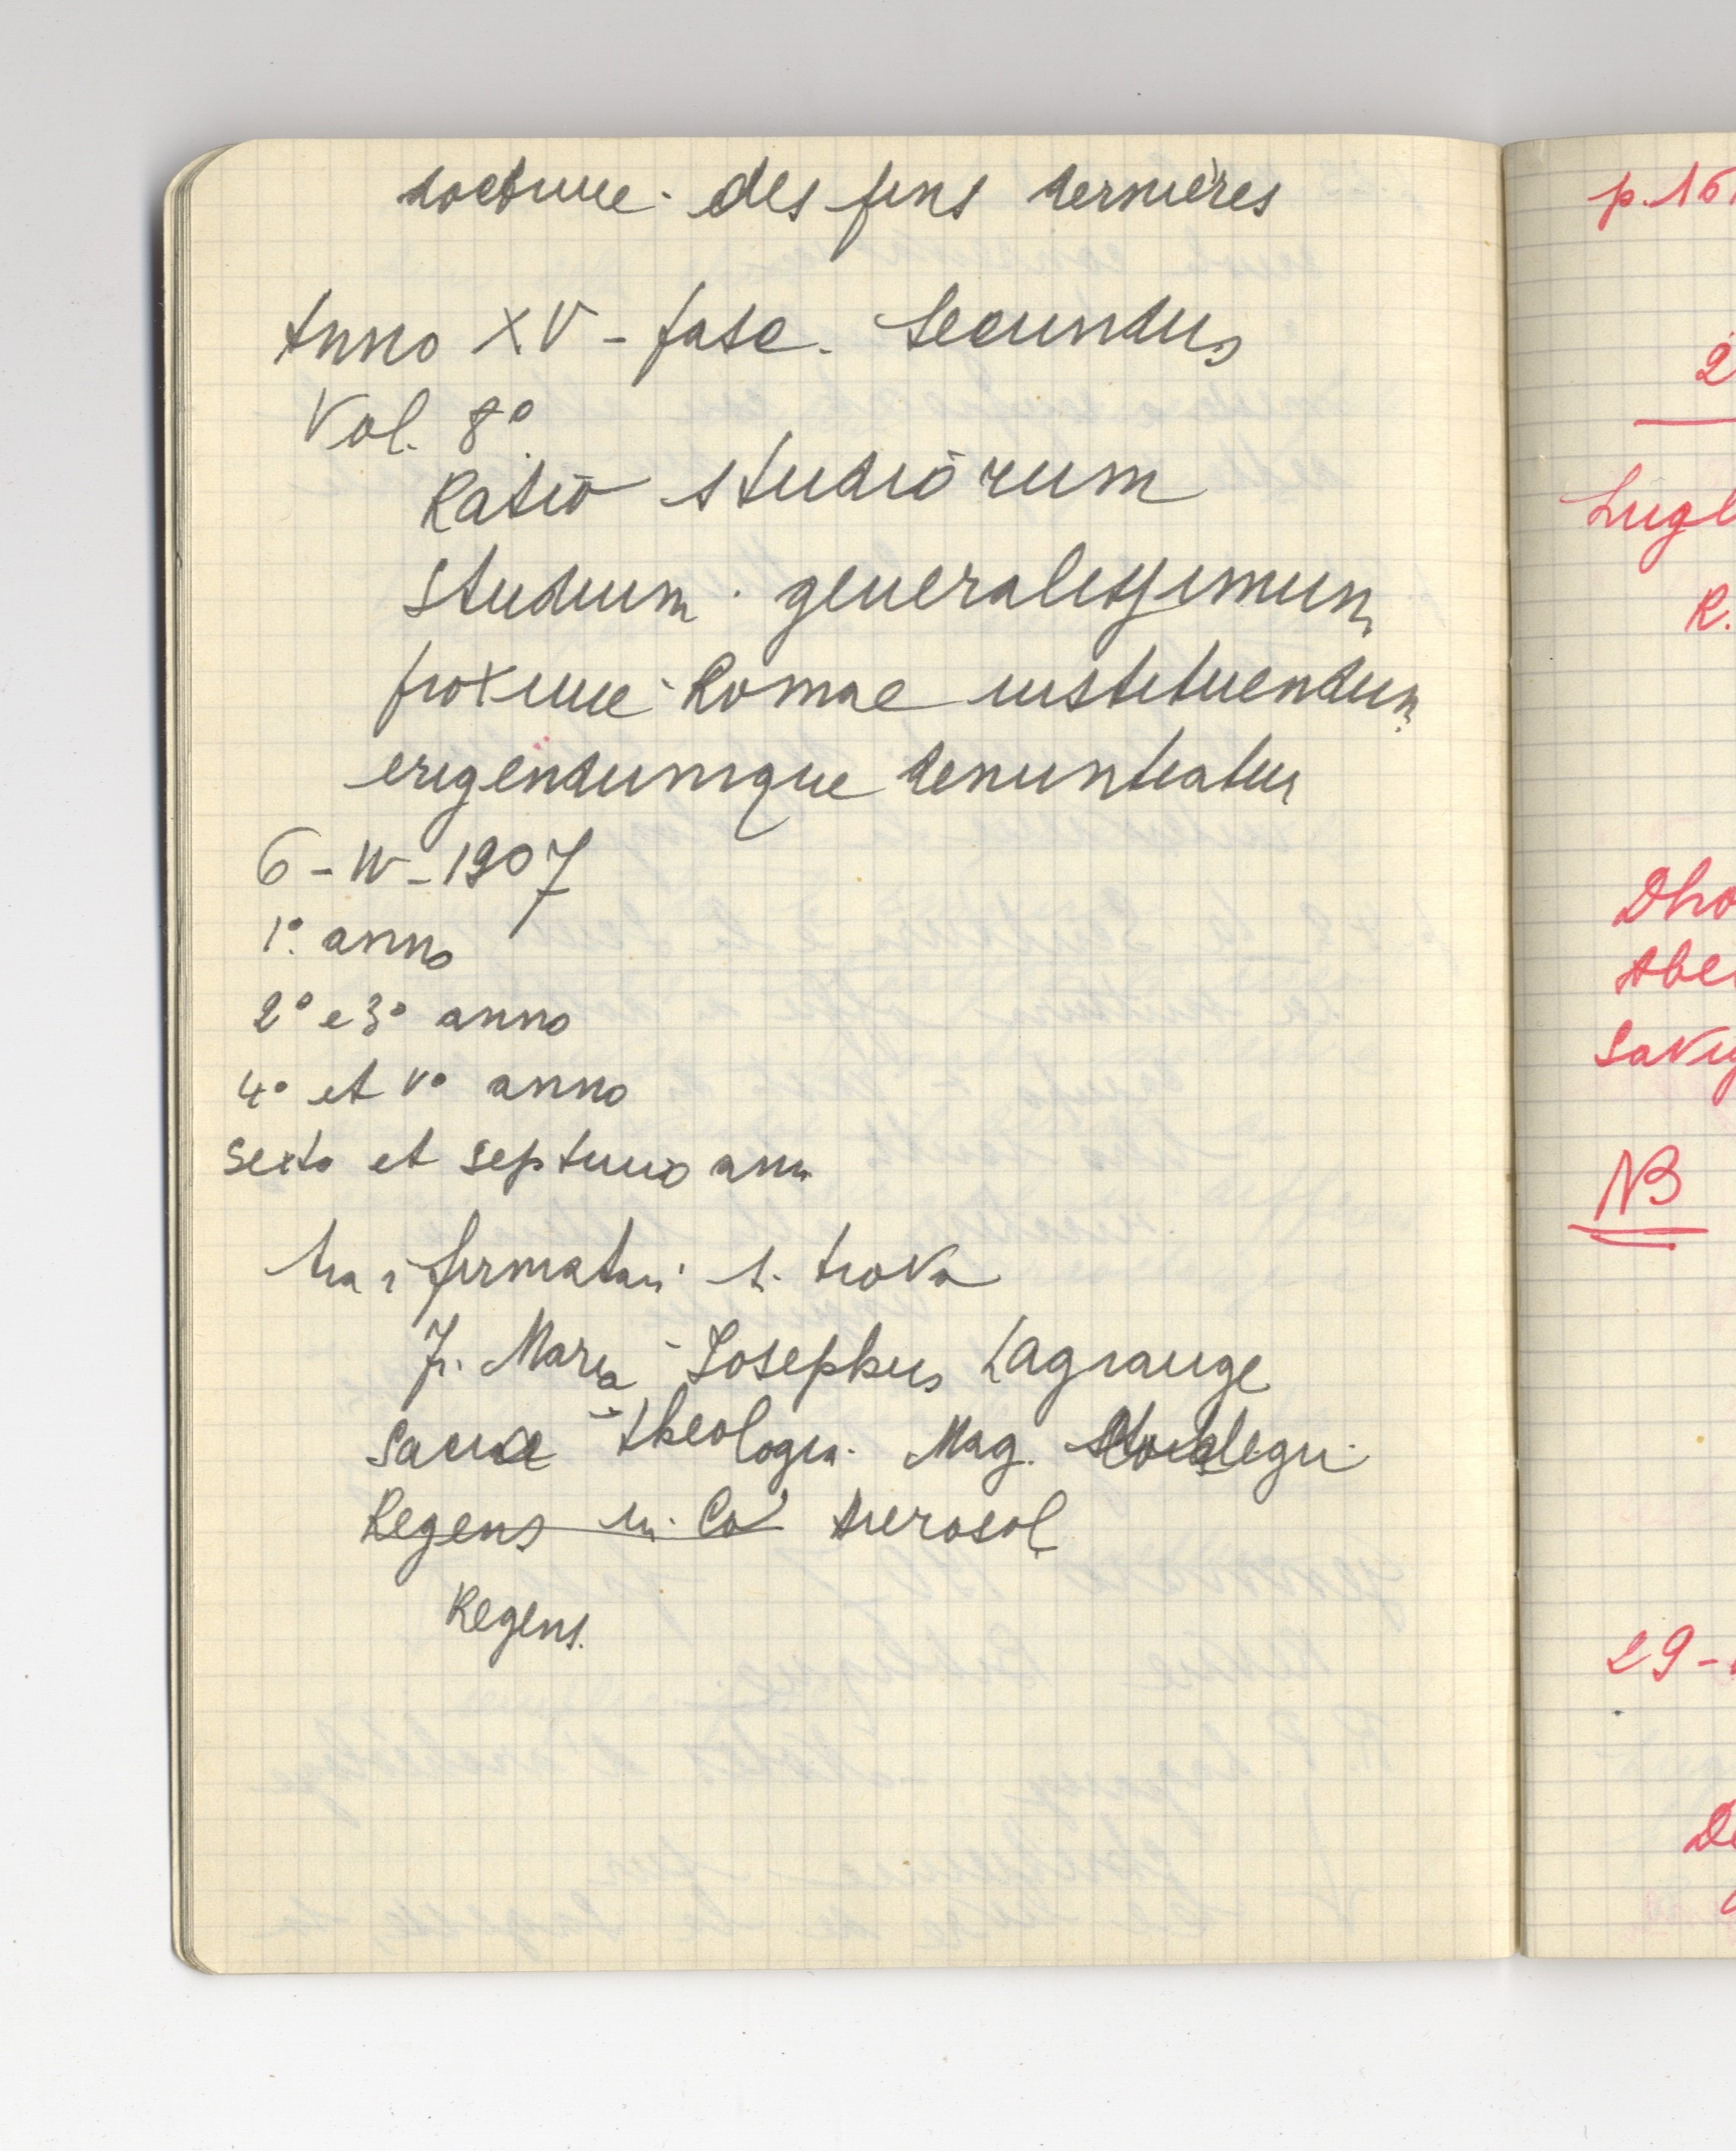 doctrine des fins dernières
Anno XV - fasc. Secundus
Vol. 8º
Ratio studiorum
Studium generalissimum
proxime Romae instituendum
erigendumque denuntiatur
6 - IV - 1907
1º anno
2º e 3º anno
4º et Vº anno
Sexto et septimo ann
tra i firmatari si trova
fr. Maria Josephus Lagrange
Sacrae theologiae Mag.
Regens in Co Hierosol
Regens.
p. 161
2
Lugl
R.
Dho
Abe
Savig
NB
29 -
De